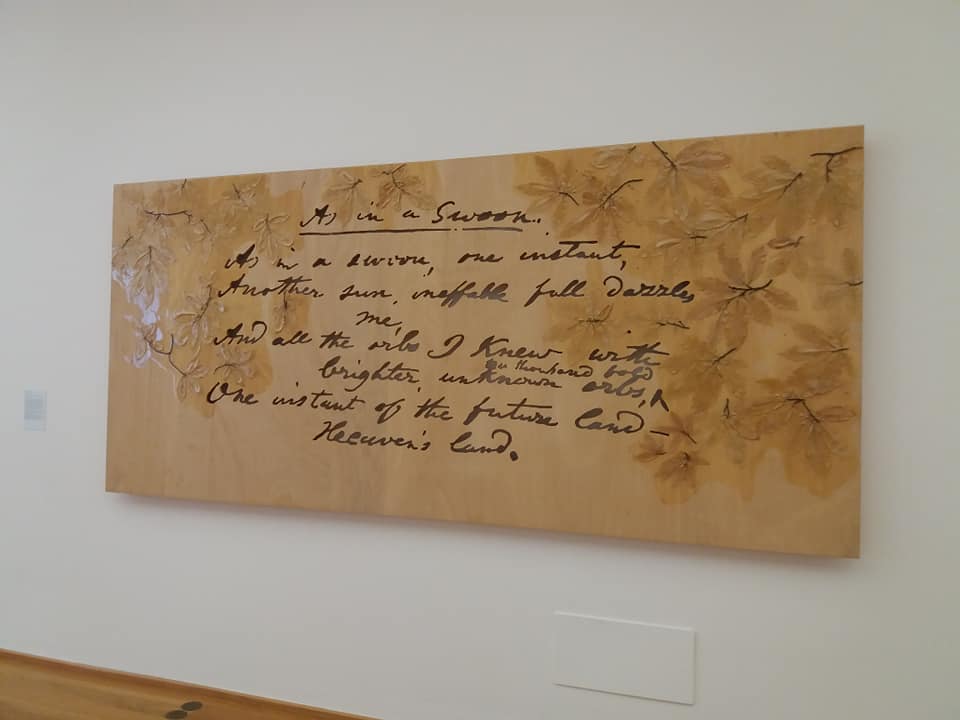 As in a Swoon.
As in a swoon, one instant,
Another sun, ineffable full dazzles
me,
And all the orbs I Knew with
thousand bold
brighter, unknown orbs,
One instant of the future land —
Heaven's land.